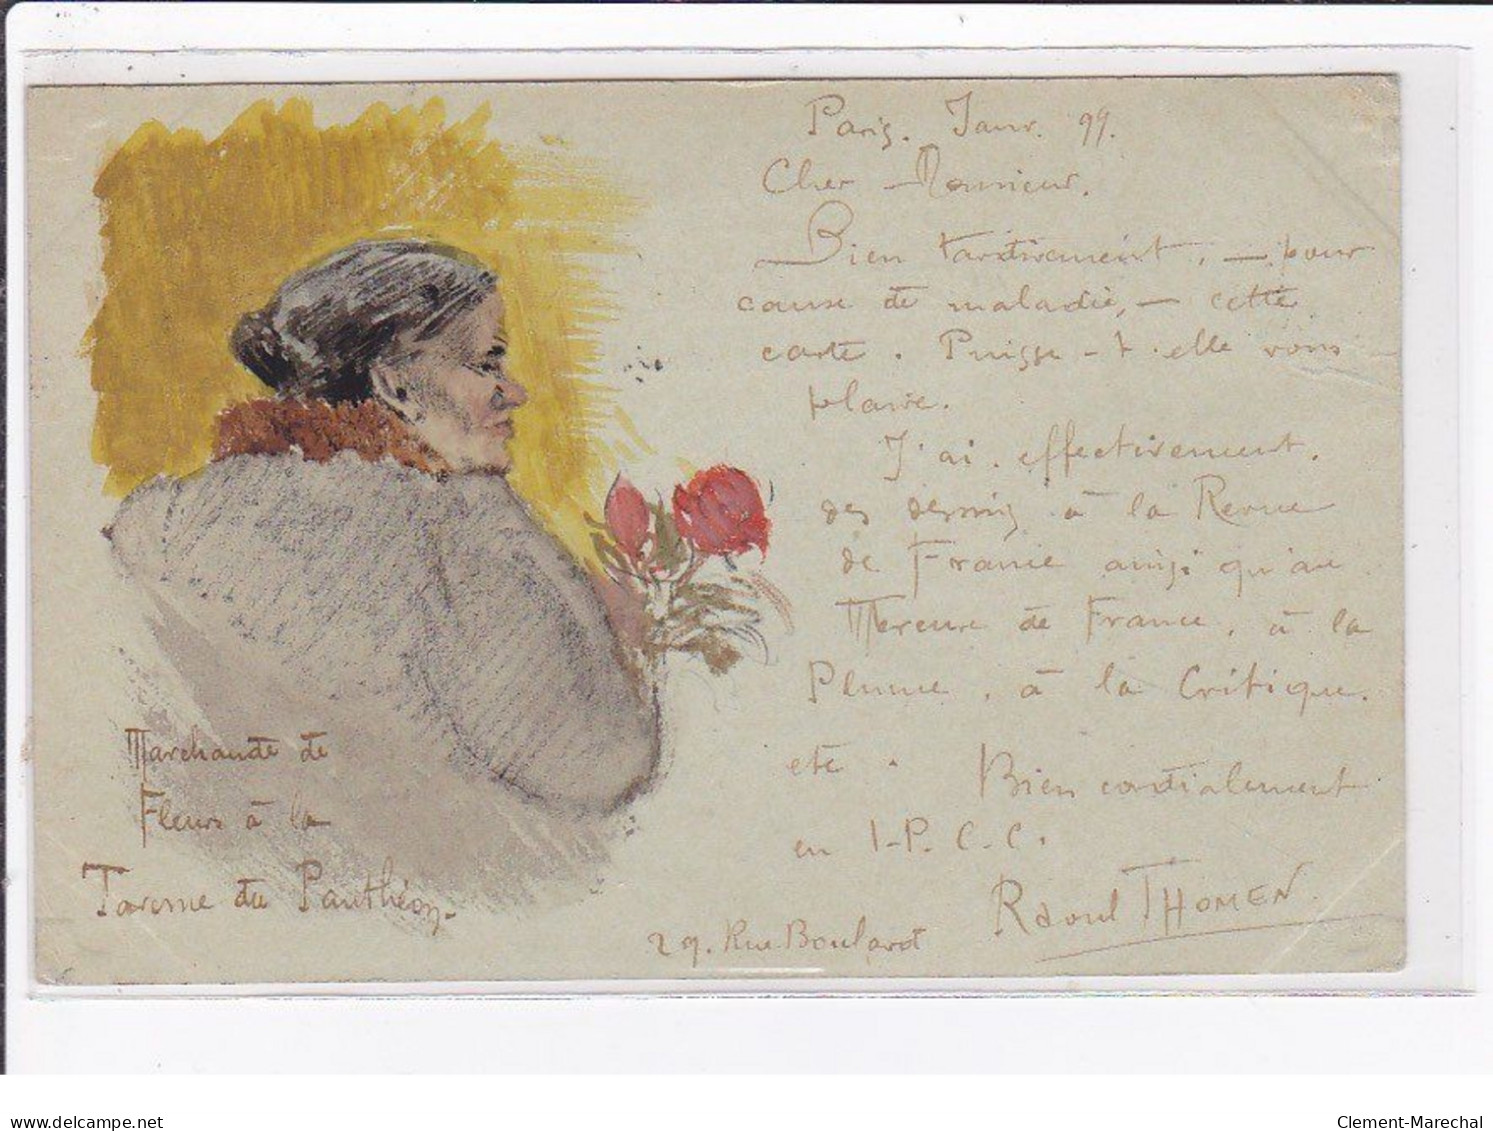 Paris. Janv. 99.
Cher Monsieur.
Bien tardivement, — pour
cause de maladie, — cette
carte. Puisse-t-elle vous
plaire.
J'ai effectivement.
des dessins à la Revue
de France ainsi qu'au
Mercure de France, à la
Plume, à la Critique.
etc. Bien cordialement
en I-P. C.C.
Raoul THOMEN
29. Rue Boulard
Marchande de
Fleurs à la
Taverne du Panthéon-
delcampe.net
Clement-Marechal